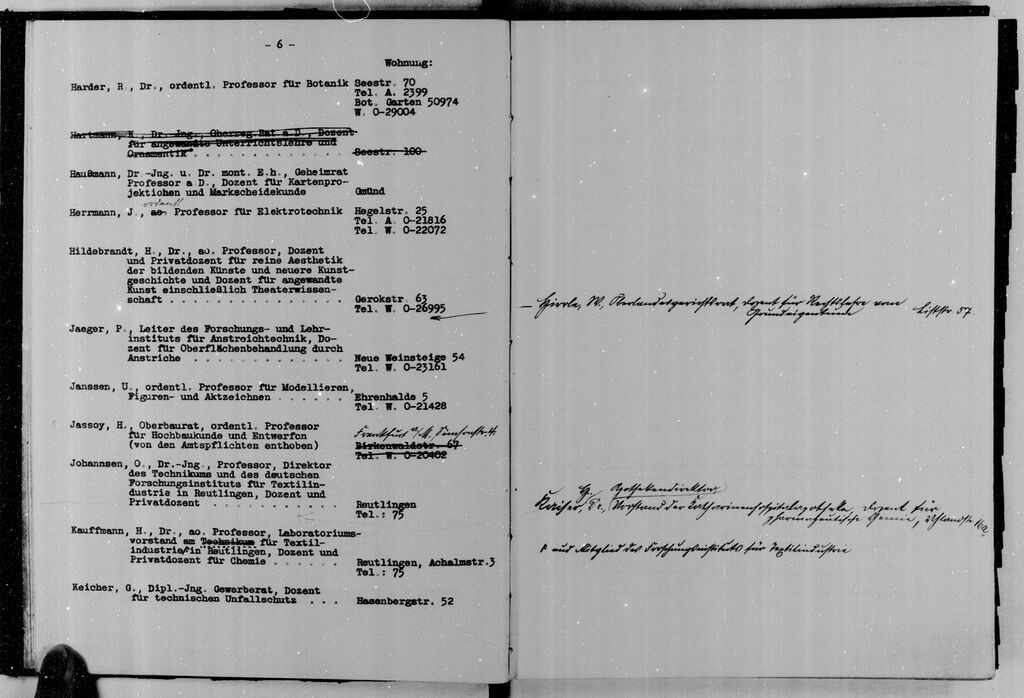 - 6 -
Wohnung:
Harder, R., Dr., ordentl. Professor für Botanik Seestr. 70
Tel. A. 2399
Bot. Garten 50974
W. 0-29004
Hartmann, K., Dr-Jng., Oberreg.Rat a.D., Dozent
für angewandte Unterrichtslehre und
Ornamentik . . . . . . . . . . . . Seestr. 100
Haußmann, Dr.-Jng. u. Dr. mont. E.h., Geheimrat
Professor a D., Dozent für Kartenpro-
jektionen und Markscheidekunde Gmünd
ordentl
Herrmann, J., ao. Professor für Elektrotechnik Hegelstr. 25
Tel. A. 0-21816
Tel. W. 0-22072
Hildebrandt, H., Dr., ao. Professor, Dozent
und Privatdozent für reine Aesthetik
der bildenden Künste und neuere Kunst-
geschichte und Dozent für angewandte
Kunst einschließlich Theaterwissen-
schaft . . . . . . . . . . . . . . Gerokstr. 63
Tel. W. 0-26995
Jaeger, P., Leiter des Forschungs- und Lehr-
instituts für Anstreichtechnik, Do-
zent für Oberflächenbehandlung durch
Anstriche . . . . . . . . . . . . Neue Weinsteige 54
Tel. W. 0-23161
Janssen, U., ordentl. Professor für Modellieren,
Figuren- und Aktzeichnen . . . . . . Ehrenhalde 5
Tel. W. 0-21428
Jassoy, H., Oberbaurat, ordentl. Professor
für Hochbaukunde und Entwerfen Frankfurt a/M.
(von den Amtspflichten enthoben) Birkenwaldstr. 67
Tel. W. 0-20402
Johannsen, O., Dr.-Jng., Professor, Direktor
des Technikums und des deutschen
Forschungsinstituts für Textilin-
dustrie in Reutlingen, Dozent und
Privatdozent . . . . . . . . . . . Reutlingen
Tel.: 75
Kauffmann, H., Dr., ao. Professor, Laboratoriums-
vorstand am Technikum für Textil-
industrie in Reutlingen, Dozent und
Privatdozent für Chemie . . . . . . Reutlingen, Achalmstr.3
Tel.: 75
Keicher, G., Dipl.-Jng. Gewerberat, Dozent
für technischen Unfallschutz . . . Hasenbergstr. 52
– Hirrle, W., Oberlandesgerichtsrat, Dozent für Rechtslehre vom
Grundeigentum Liststr. 57.
H. Apothekendirektor
Kaiser, Dr., Vorstand der Katharinenhospitalapotheke, Dozent für
pharmazeutische Chemie, Uhlandstr.
und Mitglied des Forschungsinstituts für Textilindustrie